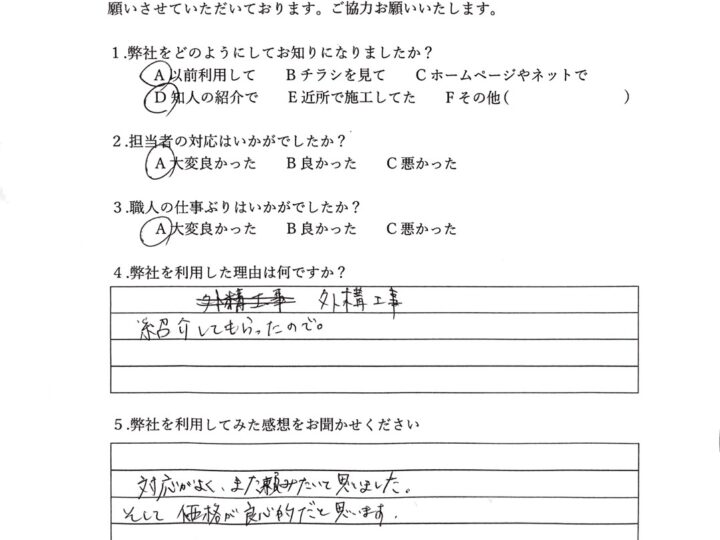 願いさせていただいております。ご協力お願いいたします。
1.弊社をどのようにしてお知りになりましたか？
A以前利用して　Bチラシを見て　Cホームページやネットで
D知人の紹介で　E近所で施工してた　Fその他(　　　　　)
2.担当者の対応はいかがでしたか？
A大変良かった　B良かった　C悪かった
3.職人の仕事ぶりはいかがでしたか？
A大変良かった　B良かった　C悪かった
4.弊社を利用した理由は何ですか？
外構工事　外構工事
紹介してもらったので。
5.弊社を利用してみた感想をお聞かせください
対応がよく、また頼みたいて思いました。
そして価格が良心的だと思います.